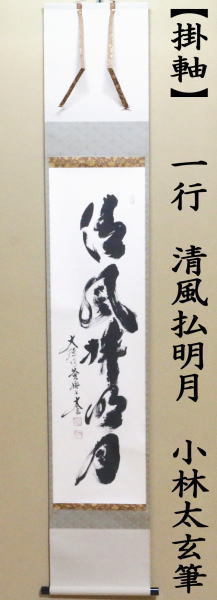 【掛軸】 一行 清風払明月 小林太玄筆
清風拂明月